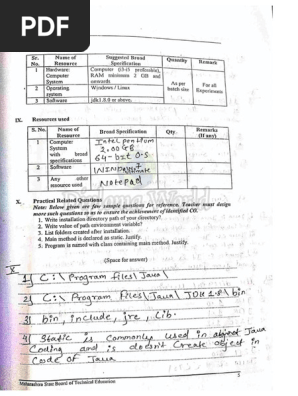 PDF
Sr. No. Name of Resource Suggested Broad Specification Quantity Remark
1 Hardware: Computer System Computer (i3-i5 preferable), RAM minimum 2 GB and onwards As per batch size For all Experiments
2 Operating system Windows / Linux
3 Software jdk1.8.0 or above.
IX. Resources used
S. No. Name of Resource Broad Specification Qty. Remarks (If any)
1 Computer System with broad specifications Intel pentium 2.00GB 64-bit O.S.
2 Software
3 Any other resource used Notepad
X. Practical Related Questions
Note: Below given are few sample questions for reference. Teacher must design
more such questions so as to ensure the achievement of identified CO.
1. Write installation directory path of your directory?
2. Write value of path environment variable?
3. List folders created after installation.
4. Main method is declared as static. Justify.
5. Program is named with class containing main method. Justify.
(Space for answer)
X
1] C:\Program files\Java\
2] C:\ Program Files\Java\ JDK 1.8\ bin
3] bin, include, jre, lib.
4] Static is commonly used in object Java
Coding and is doesn't Create object in
Code of Java
Maharashtra State Board of Technical Education
3